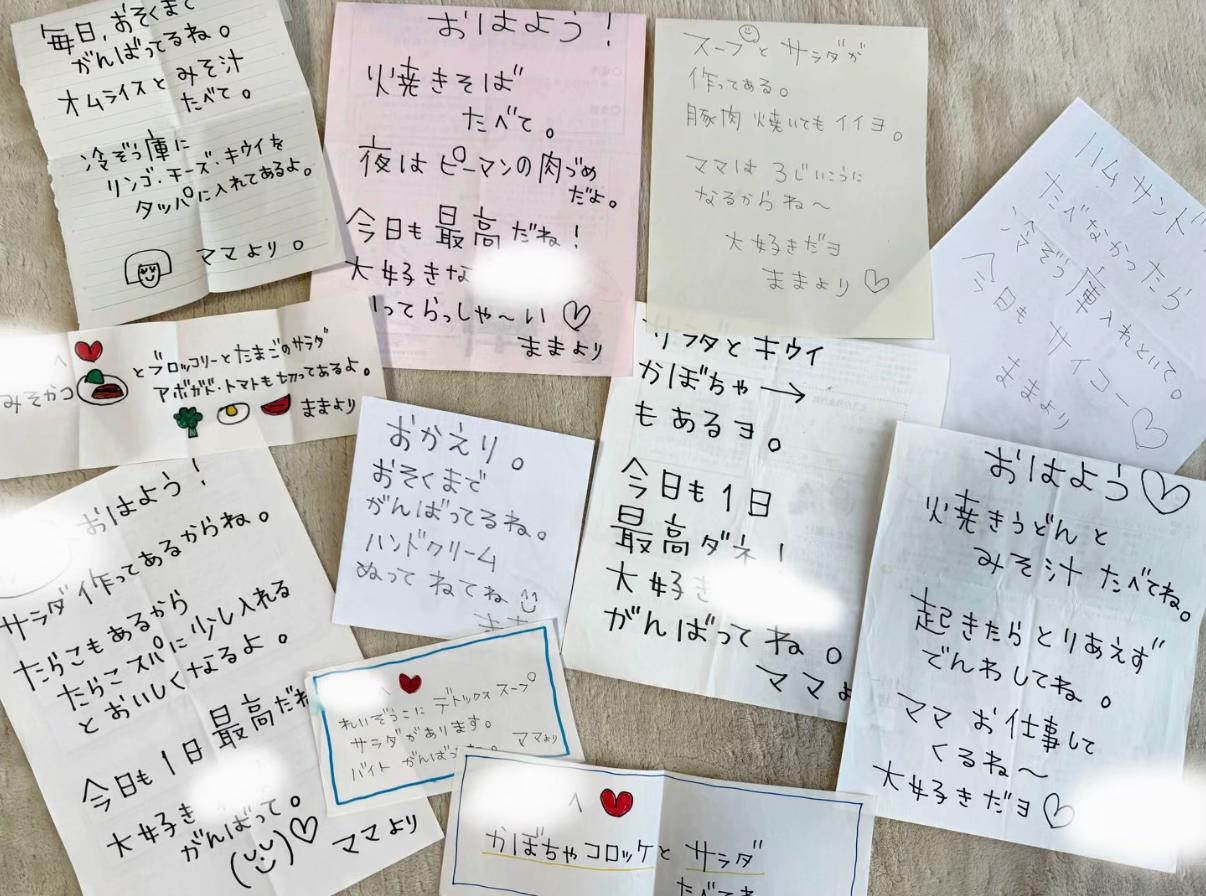 毎日,おそくまで
がんばってるね。
オムライスとみそ汁
たべて。
冷ぞう庫に
リンゴ・チーズ・キウイを
タッパに入れてあるよ。
ママより。
おはよう!
火焼きそば
たべて。
夜はピーマンの肉づめ
だよ。
今日も最高だね!
大好きな
いってらっしゃ~い♡
ままより
スープとサラダが
作ってある。
豚肉焼いてもイイヨ。
ママは3じいこうに
なるからね~
大好きだヨ
ままより♡
ハムサンド
たべなかったら
冷ぞう庫入れといて。
今日もサイコー♡
ままより
へ
みそかつ
とブロッコリーとたまごのサラダ
アボガド・トマトも切ってあるよ。
ままより
おかえり。
おそくまで
がんばってるね。
ハンドクリーム
ぬってねてね
サラダとキウイ
かぼちゃ→
もあるヨ。
今日も1日
最高ダネ!
大好き
がんばってね。
ママよ
おはよう♡
焼きうどんと
みそ汁たべてね。
起きたらとりあえず
でんわしてね。
ママお仕事して
くるね~
大好きだヨ♡
おはよう!
サラダ作ってあるからね。
たらこもあるから
たらこスパに少し入れる
とおいしくなるよ。
今日も1日最高だね
大好き
がんばって。
ママより
へ♥
れいぞうこにデトックススープ
サラダがあります。
バイトがんば
ママより
へ♥
かぼちゃコロッケとサラダ
たべてね